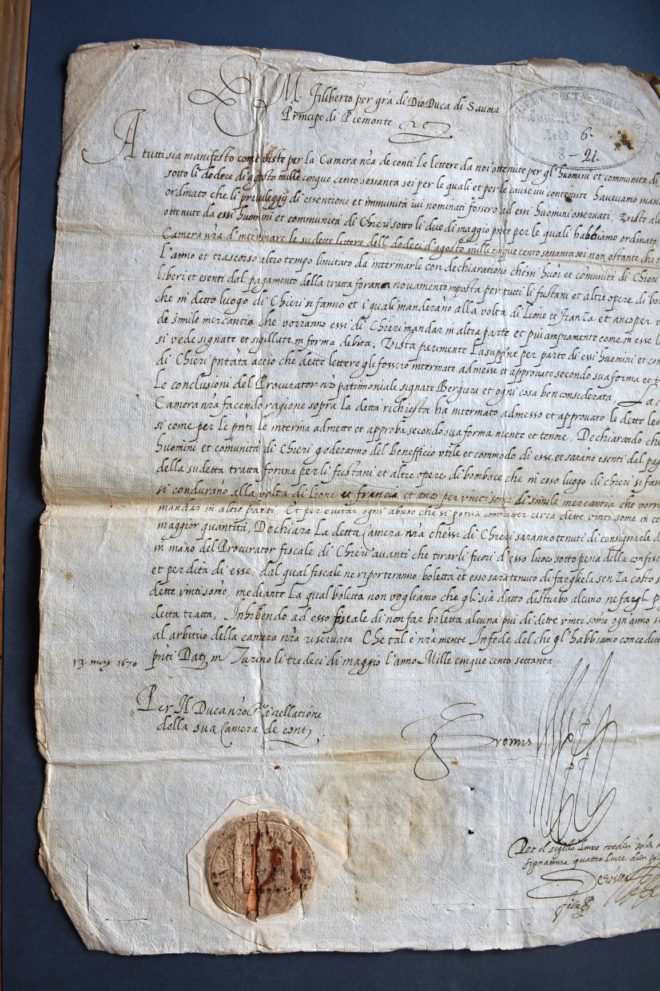 E. M. Filiberto per gra di Dio Duca di Savoia
Principe di Piemonte
Arti 6.
-21.
A tutti sia manifesto come viste per la Camera nra de conti Le lettere da noi ottenute per gl'huomini et communita di
sotto li dodeci d'agosto mille cinque cento sessanta sei per le quali et per le cause ivi contenute havevamo
ordinato che li privileggij di essentione et immunità ivi nominati fossero ad essi huomini osservati. Viste
ottenute da essi huomini et communita di Chieri sotto li due di maggio pnte per le quali habbiamo ordinato
Camera nra d'interinare le sudette lettere delli dodeci d'agosto mille cinque cento sessanta sei non ostante che
l'anno et trascorso altro tempo limitato da interinarle con dechiaratione ch'essi huoi et comunità di
liberi et esenti dal pagamento della tratta forana novamente imposta per tutti li fustani et altre opere di
che in detto luogo di Chieri si fanno et i quali manderano alla volta di Lione et franza et ancor per
de simile mercantia che vorrano essi di Chieri mandar in altra parte et piu ampiamente come in esse
si vede signate et sigillate in forma debita. Vista parimente La supne per parte di essi huomini et
di Chieri pntata accio che dette lettere gli fossero interinate admesse et approvate secondo sua forma et
Le conclusioni del Procurator nro patrimoniale signate Bergera et ogni cosa ben considerata La
Camera nra facendo ragione sopra la detta richiesta ha interinato admesso et approvato le dette
si come per le pnti le interina admette et approba secondo sua forma mente et tenore, Dechiarando che
huomini et comunità di Chieri goderanno del benefficio utile et commodo di esse, et sarano esenti dal
della sudetta tratta forana per li fustani et altre opere di bombace che in esso luogo di Chieri si
si condurano alla volta di Lione et francia et anco per vinti some di simile mercantia che
mandar in altre parti. Et per evitar ogni abuso che si potria commetter circa dette vinti some in
maggior quantità, Dechiara La detta Camera nra ch'essi di Chieri saranno tenuti di consignarle
in mano del Procurator fiscale di Chieri avanti che tirarli fuori d'esso luoco sotto pena della
et perdita di esse, dal qual fiscale ne riporteranno boletta et esso sara tenuto di farghela senza costo
dette vinti some, mediante La qual boletta non vogliamo che gli sia datto disturbo alcuno ne far gli
detta tratta, Inhibendo ad esso fiscale di non far boletta alcuna piu di dete vinti some ogni anno
al arbitrio della camera nra riservata Che tal è nra mente. In fede del che gl'habbiamo
pnti Dat. in Turino li tredeci di maggio l'anno Mille cinque cento settanta
13. may 1570
Per Il Duca nro Sre a rellatione
della sua Camera de conti
Per il sigillo Livre tredici soldi
signattura quattro livre dieci